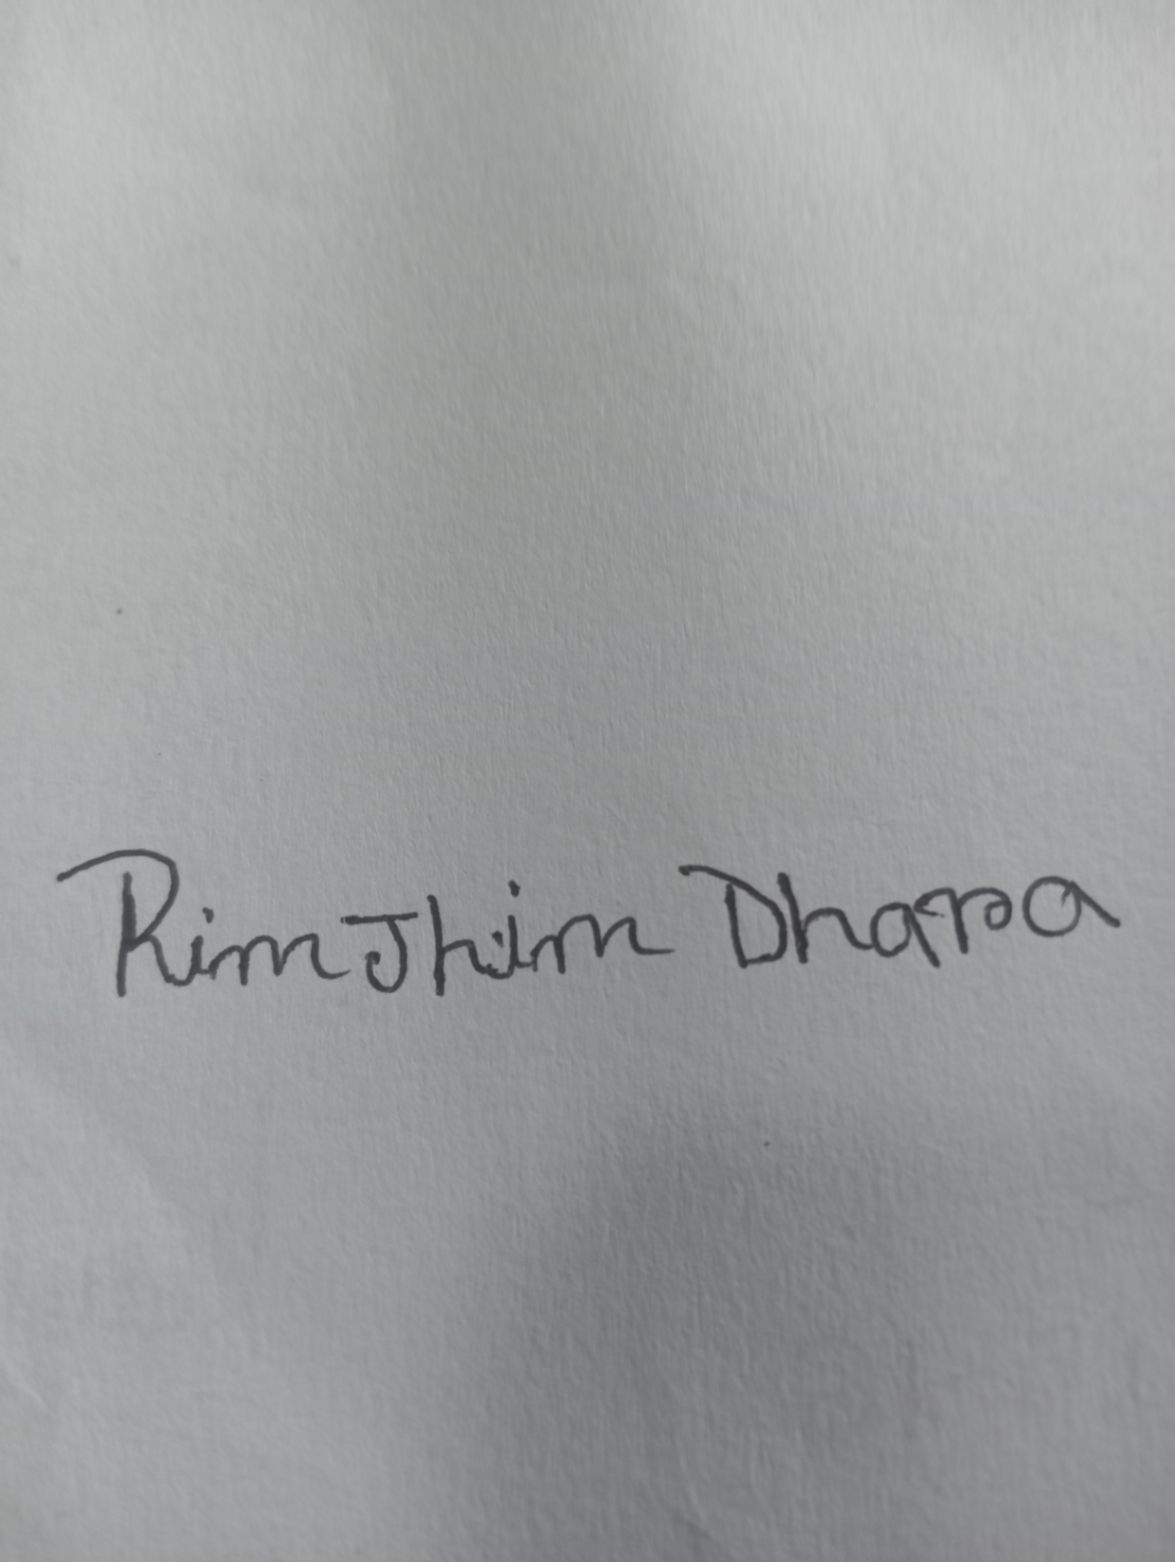 RimJhim Dhara